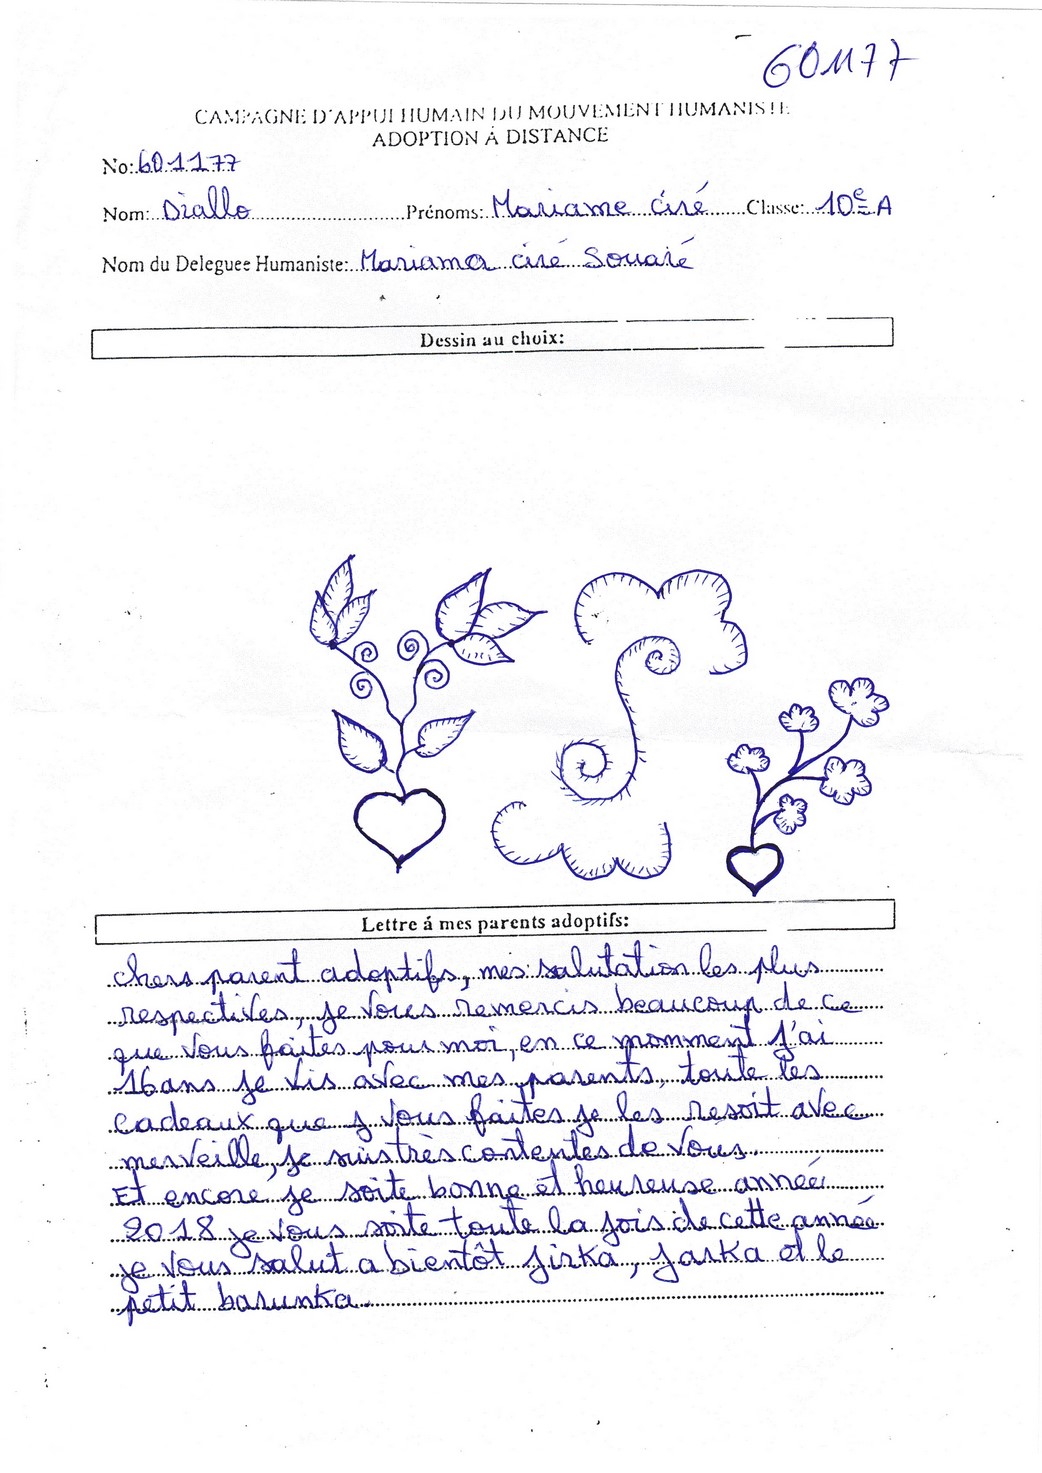 601177
CAMPAGNE D'APPUI HUMAIN DU MOUVEMENT HUMANISTE
ADOPTION Á DISTANCE
No: 601177
Nom: Diallo Prénoms: Mariame ciré Classe: 10e A
Nom du Deleguee Humaniste: Mariama ciré Souaré
Dessin au choix:
Lettre á mes parents adoptifs:
chers parent adoptifs, mes salutation les plus
respectives, je vous remercis beaucoup de ce
que vous faites pour moi, en ce momment j'ai
16ans je vis avec mes parents, toute les
cadeaux que y vous faites je les resoit avec
merveille, je suis très contentes de vous
Et encore je soite bonne et heureuse année
2018 je vous soite toute la jois de cette année
je vous salut a bientôt Jirka, Jarka et le
petit barunka.